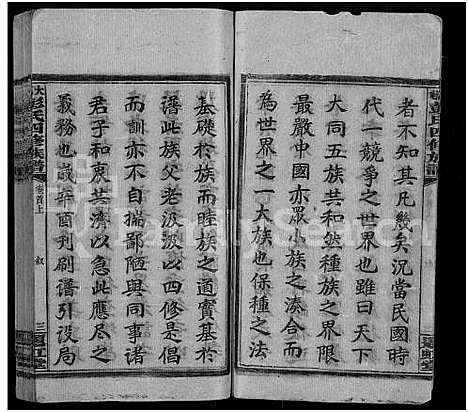 者不知其凡幾矣況當民國時
代一競爭之世界也雖曰天下
大同五族共和然種族之界限
最嚴中國亦眾小族之湊合而
為世界之一大族也保種之法
基礎於族而睦族之道實基於
譜此族父老汲汲以四修是
而訓亦不自揣鄙陋與同事諸
君子和衷共濟以急此應盡之
義務也歲辛酉刊刷譜引設局
彭氏四修族譜
卷首上
敘
三
FamilySearch